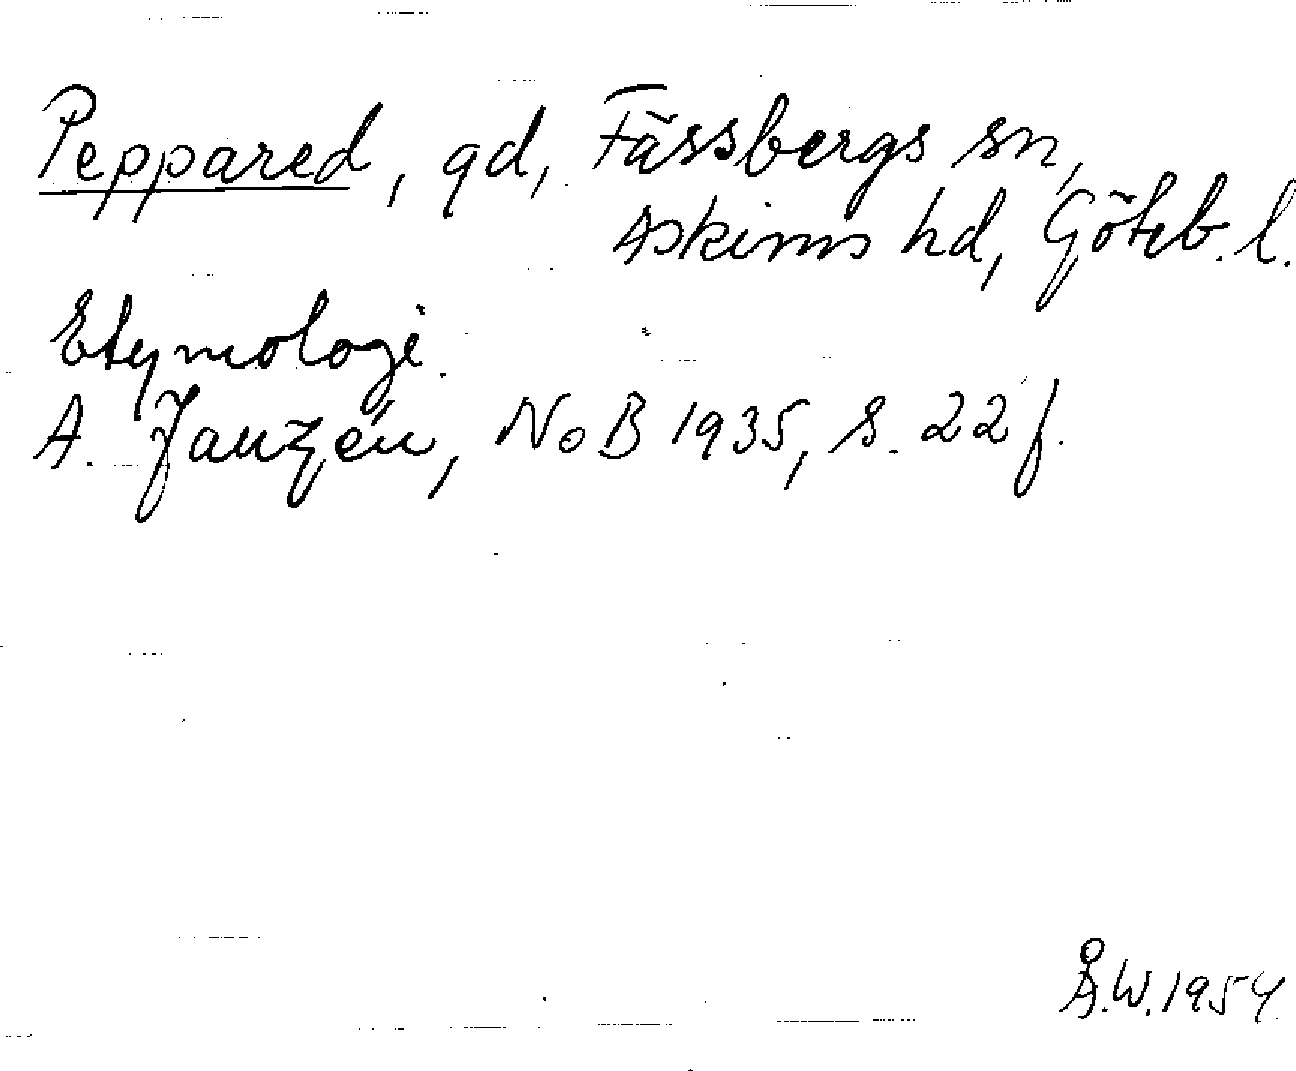 Peppared, gd, Fässbergs sn,
Askims hd, Göteb. l.
Etymologi.
A. Janzén, NoB 1935, s. 22 f.
Å.W. 1954